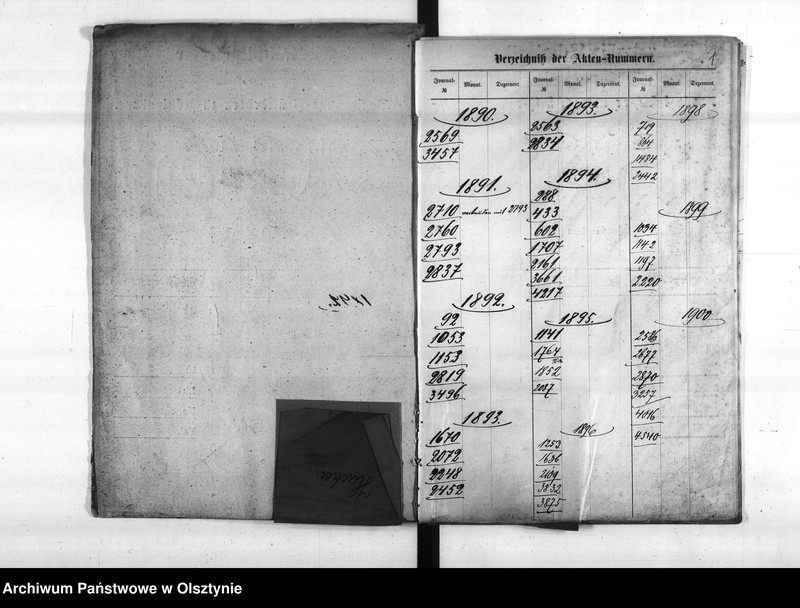 Verzeichniß der Akten-Nummern.
1
Journal-№ Monat. Dezernent. Journal-№ Monat. Dezernent. Journal-№ Monat. Dezernent.
1890.
2569
3457
1891.
2710 verbunden mit 2793
2760
2793
2837
1892.
92
1053
1153
2819
3496
1893.
1670
2072
2248
2452
1893.
2563
2834
1894.
288
433
602
1707
2161
3661
4217
1895.
1141
1764
1852
2087
1896
1253
1636
2109
3832
3875
1898
719
864
1484
2442
1899
1034
1142
1197
2220
1900
2586
2677
2870
3257
4016
4540
Archiwum Państwowe w Olsztynie